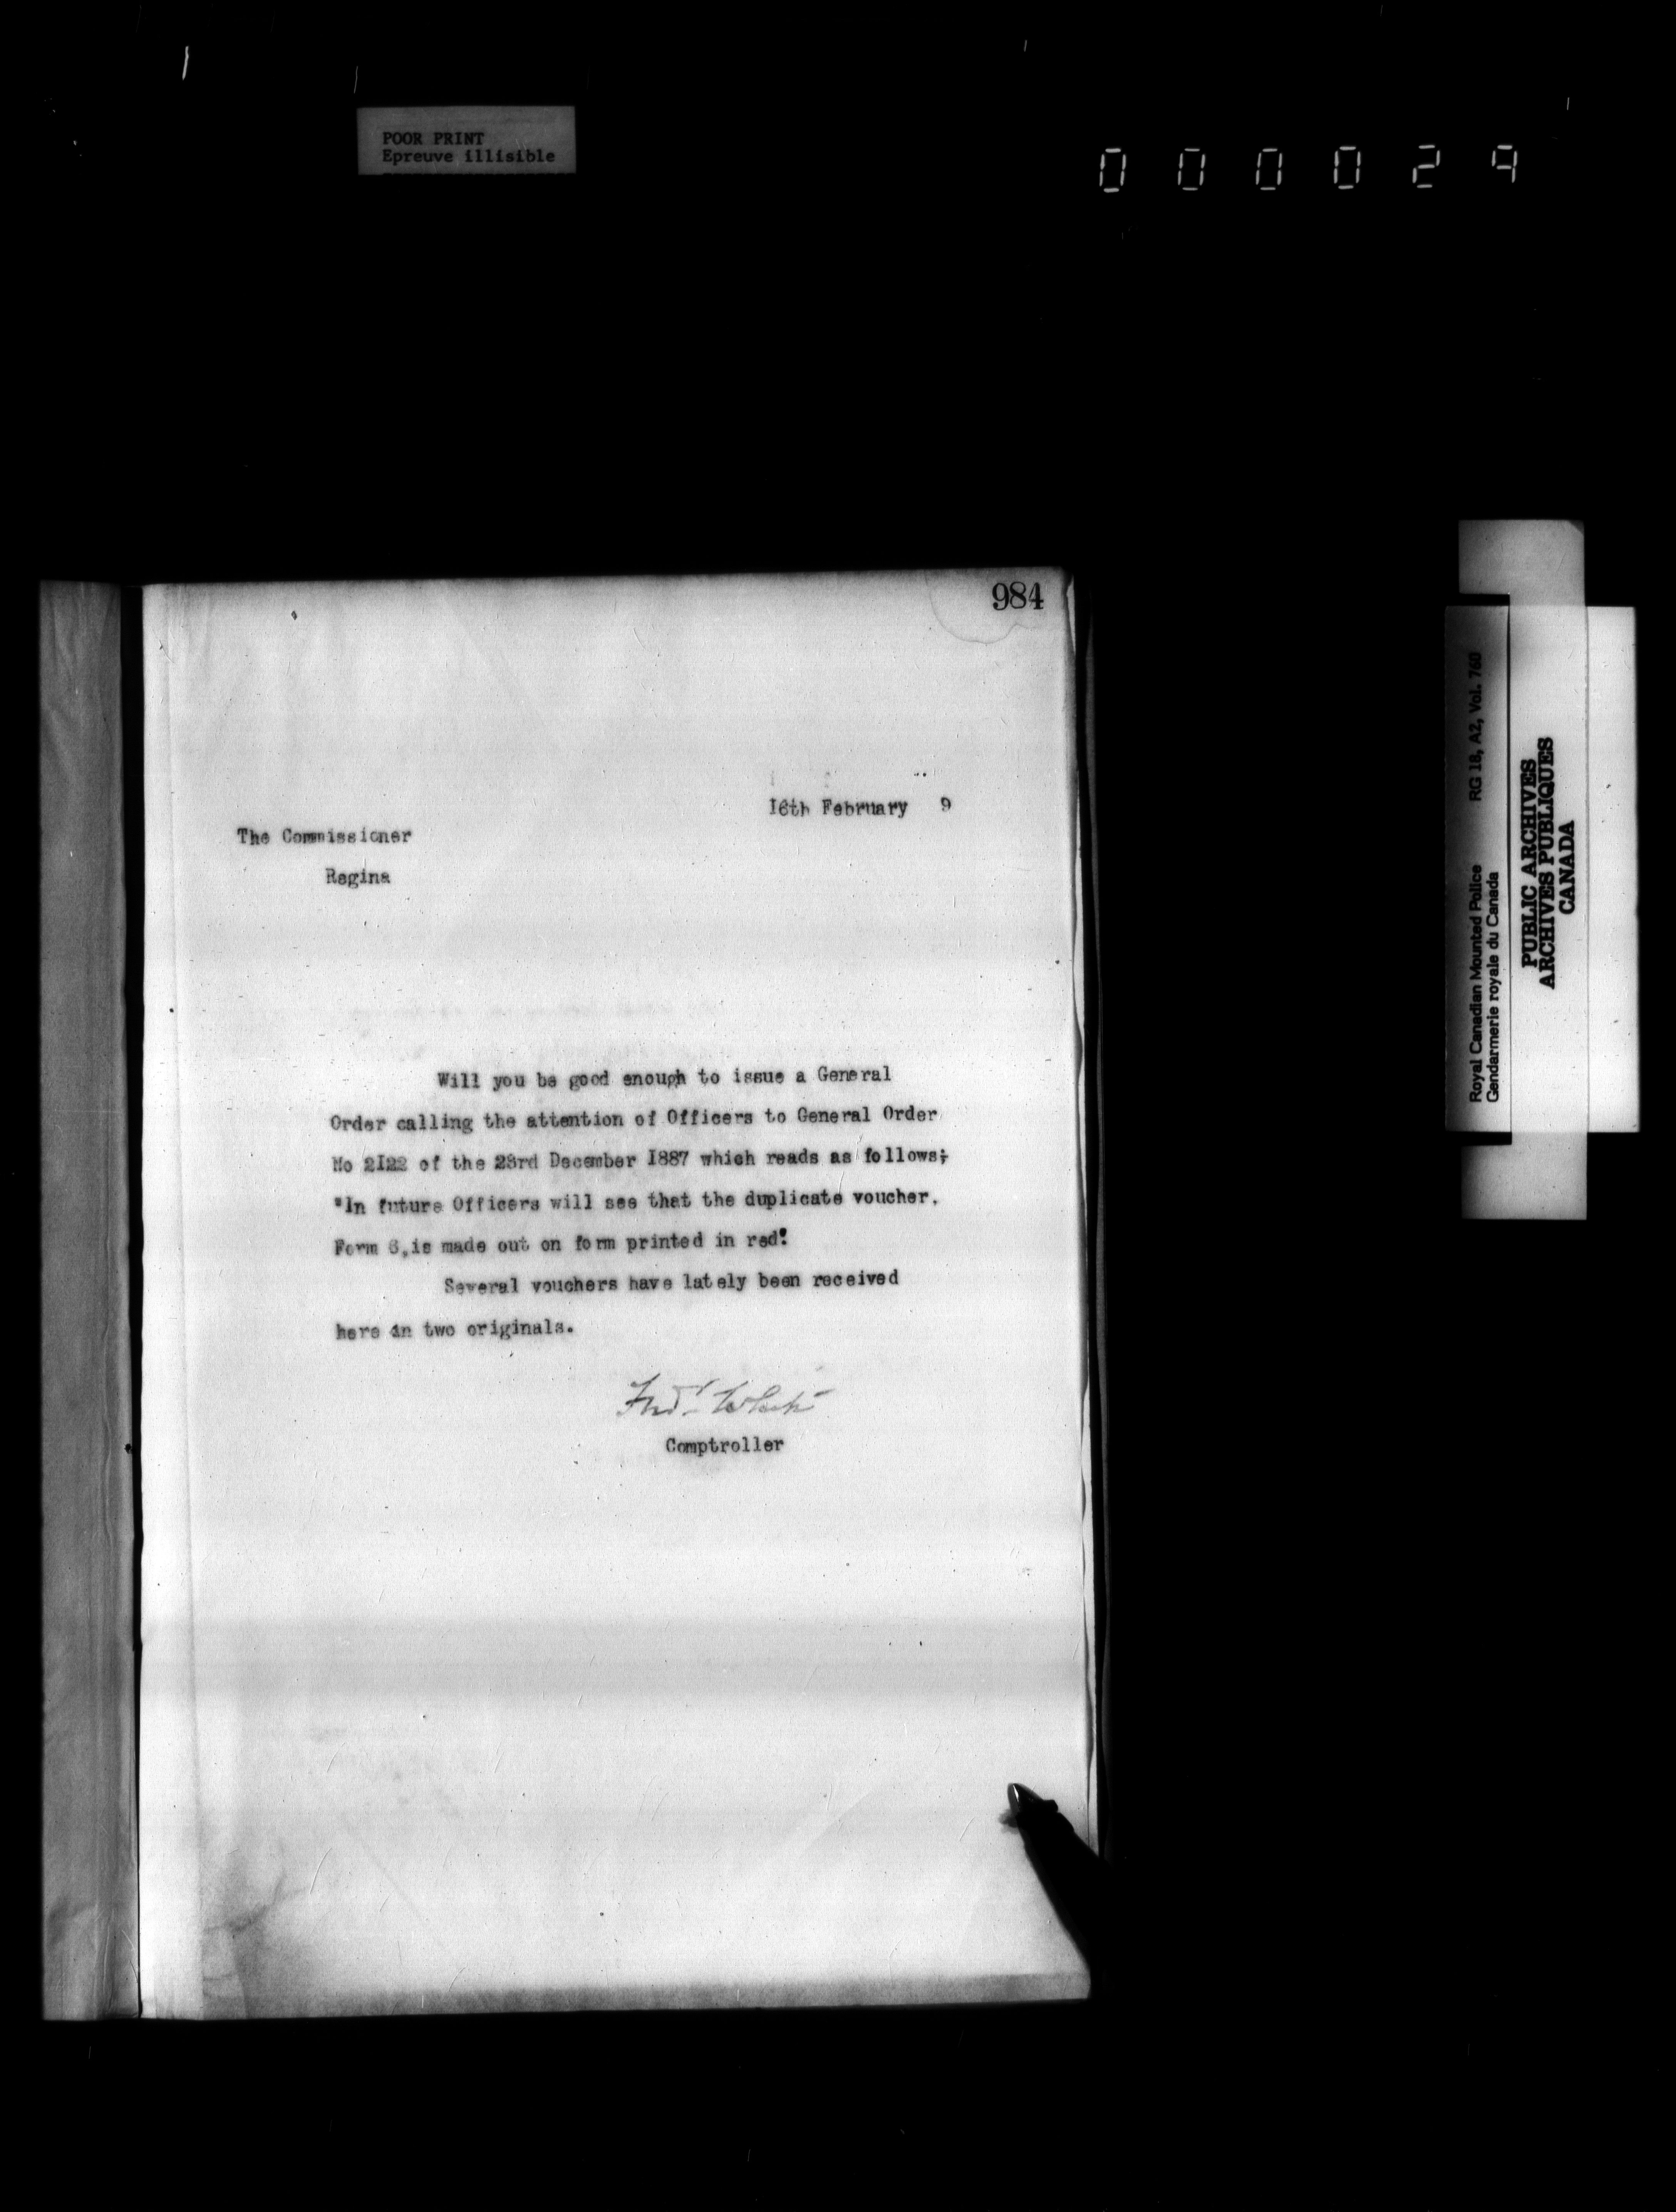 POOR PRINT
Epreuve illisible
000029
984
16th February 9
The Commissioner
Regina
Will you be good enough to issue a General
Order calling the attention of Officers to General Order
No 2I22 of the 23rd December I887 which reads as follows;
"In future Officers will see that the duplicate voucher,
Form 6, is made out on form printed in red".
Several vouchers have lately been received
here in two originals.
Fred White
Comptroller
Royal Canadian Mounted Police RG 18, A2, Vol. 760
Gendarmerie royale du Canada
PUBLIC ARCHIVES
ARCHIVES PUBLIQUES
CANADA